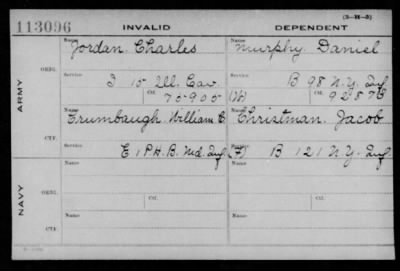 113096 INVALID DEPENDENT (3-H-3)
Name Name
Jordan Charles Murphy Daniel
ARMY
ORIG.
Service Service
I 15 Ill. Cav. B 98 N.Y. Inf
Ctf. 75905 (W) Ctf. 92875
Name Name
Crumbaugh William E Christman Jacob
CTF.
E 1 P.H.B. Md. Inf (F) B 121 N.Y. Inf
NAVY
Name Name
ORIG.
Service Ctf. Service Ctf.
Name Name
CTF.